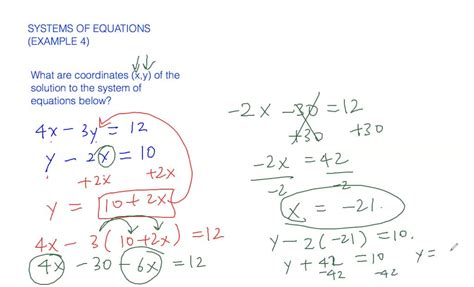 SYSTEMS OF EQUATIONS
(EXAMPLE 4)
What are coordinates (x,y) of the
solution to the system of
equations below?
4x - 3y = 12
y - 2x = 10
+2x +2x
y = 10 + 2x
4x - 3(10+2x) = 12
4x - 30 - 6x = 12
-2x - 30 = 12
+30 +30
-2x = 42
-2 -2
x = -21.
y - 2(-21) = 10.
y + 42 = 10 y =
-42 -42